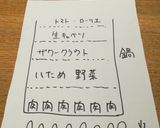 トマト・ローリエ
生キャベツ
ザワークラウト
いため 野菜
肉 肉 肉 肉 肉 肉
鍋